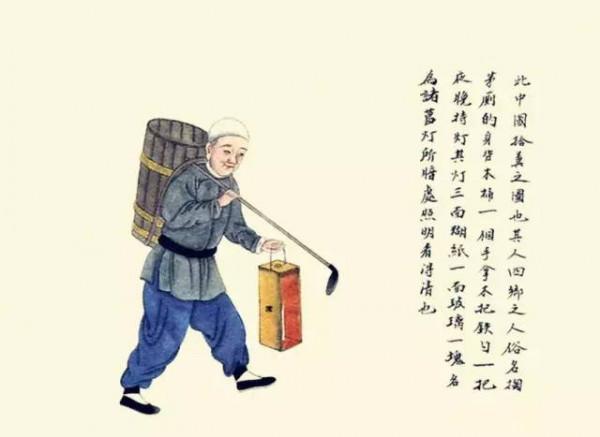 此中國拾糞之圖也其人四鄉之人俗名掏
茅廁的身背木桶一個手拿木把鉄勺一把
夜晚持灯其灯三面糊紙一面玻璃一塊名
為諸葛灯所將處照明看淂清也